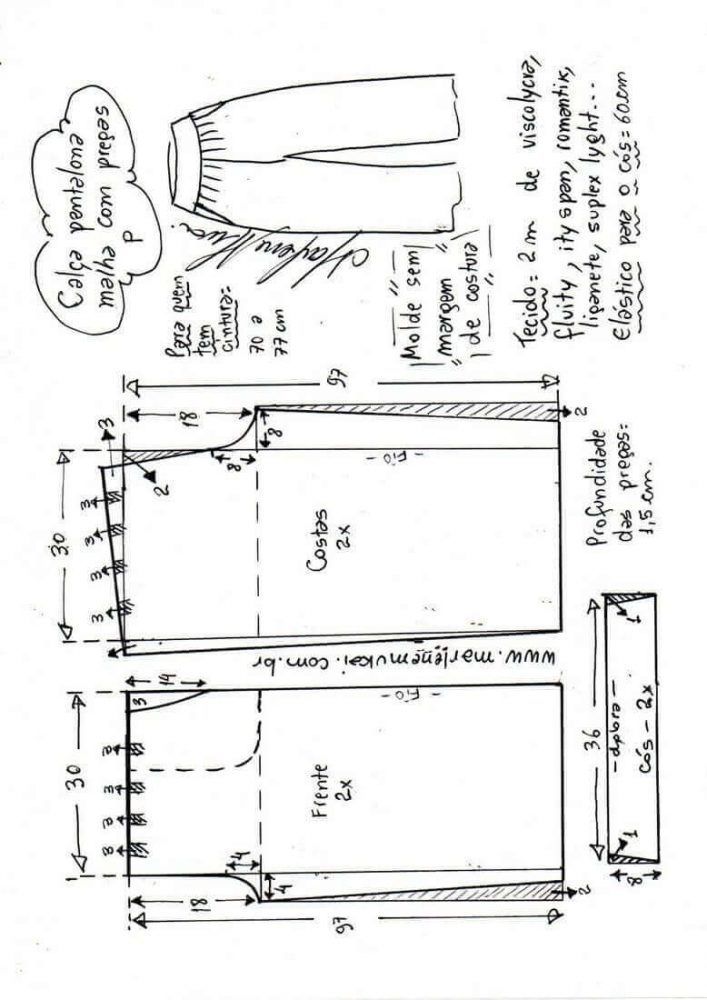 Calça pantalona
malha com pregas
P
Para quem
tem
cintura:
70 a
77 cm
Molde sem
margem
de costura
Tecido = 2 m de viscolycra,
fluity, ity span, romantik,
liganete, suplex lyght...
Elástico para o cós = 60cm
97
18
3
8
8
2
30
3
3
3
3
2
- Fio -
Costas
2x
Profundidade
das pregas:
1,5 cm.
www.marlenemukai.com.br
14
3
30
3
3
3
3
- Fio -
Frente
2x
4
4
18
2
97
36
1
- dobra -
cós - 2x
1
8